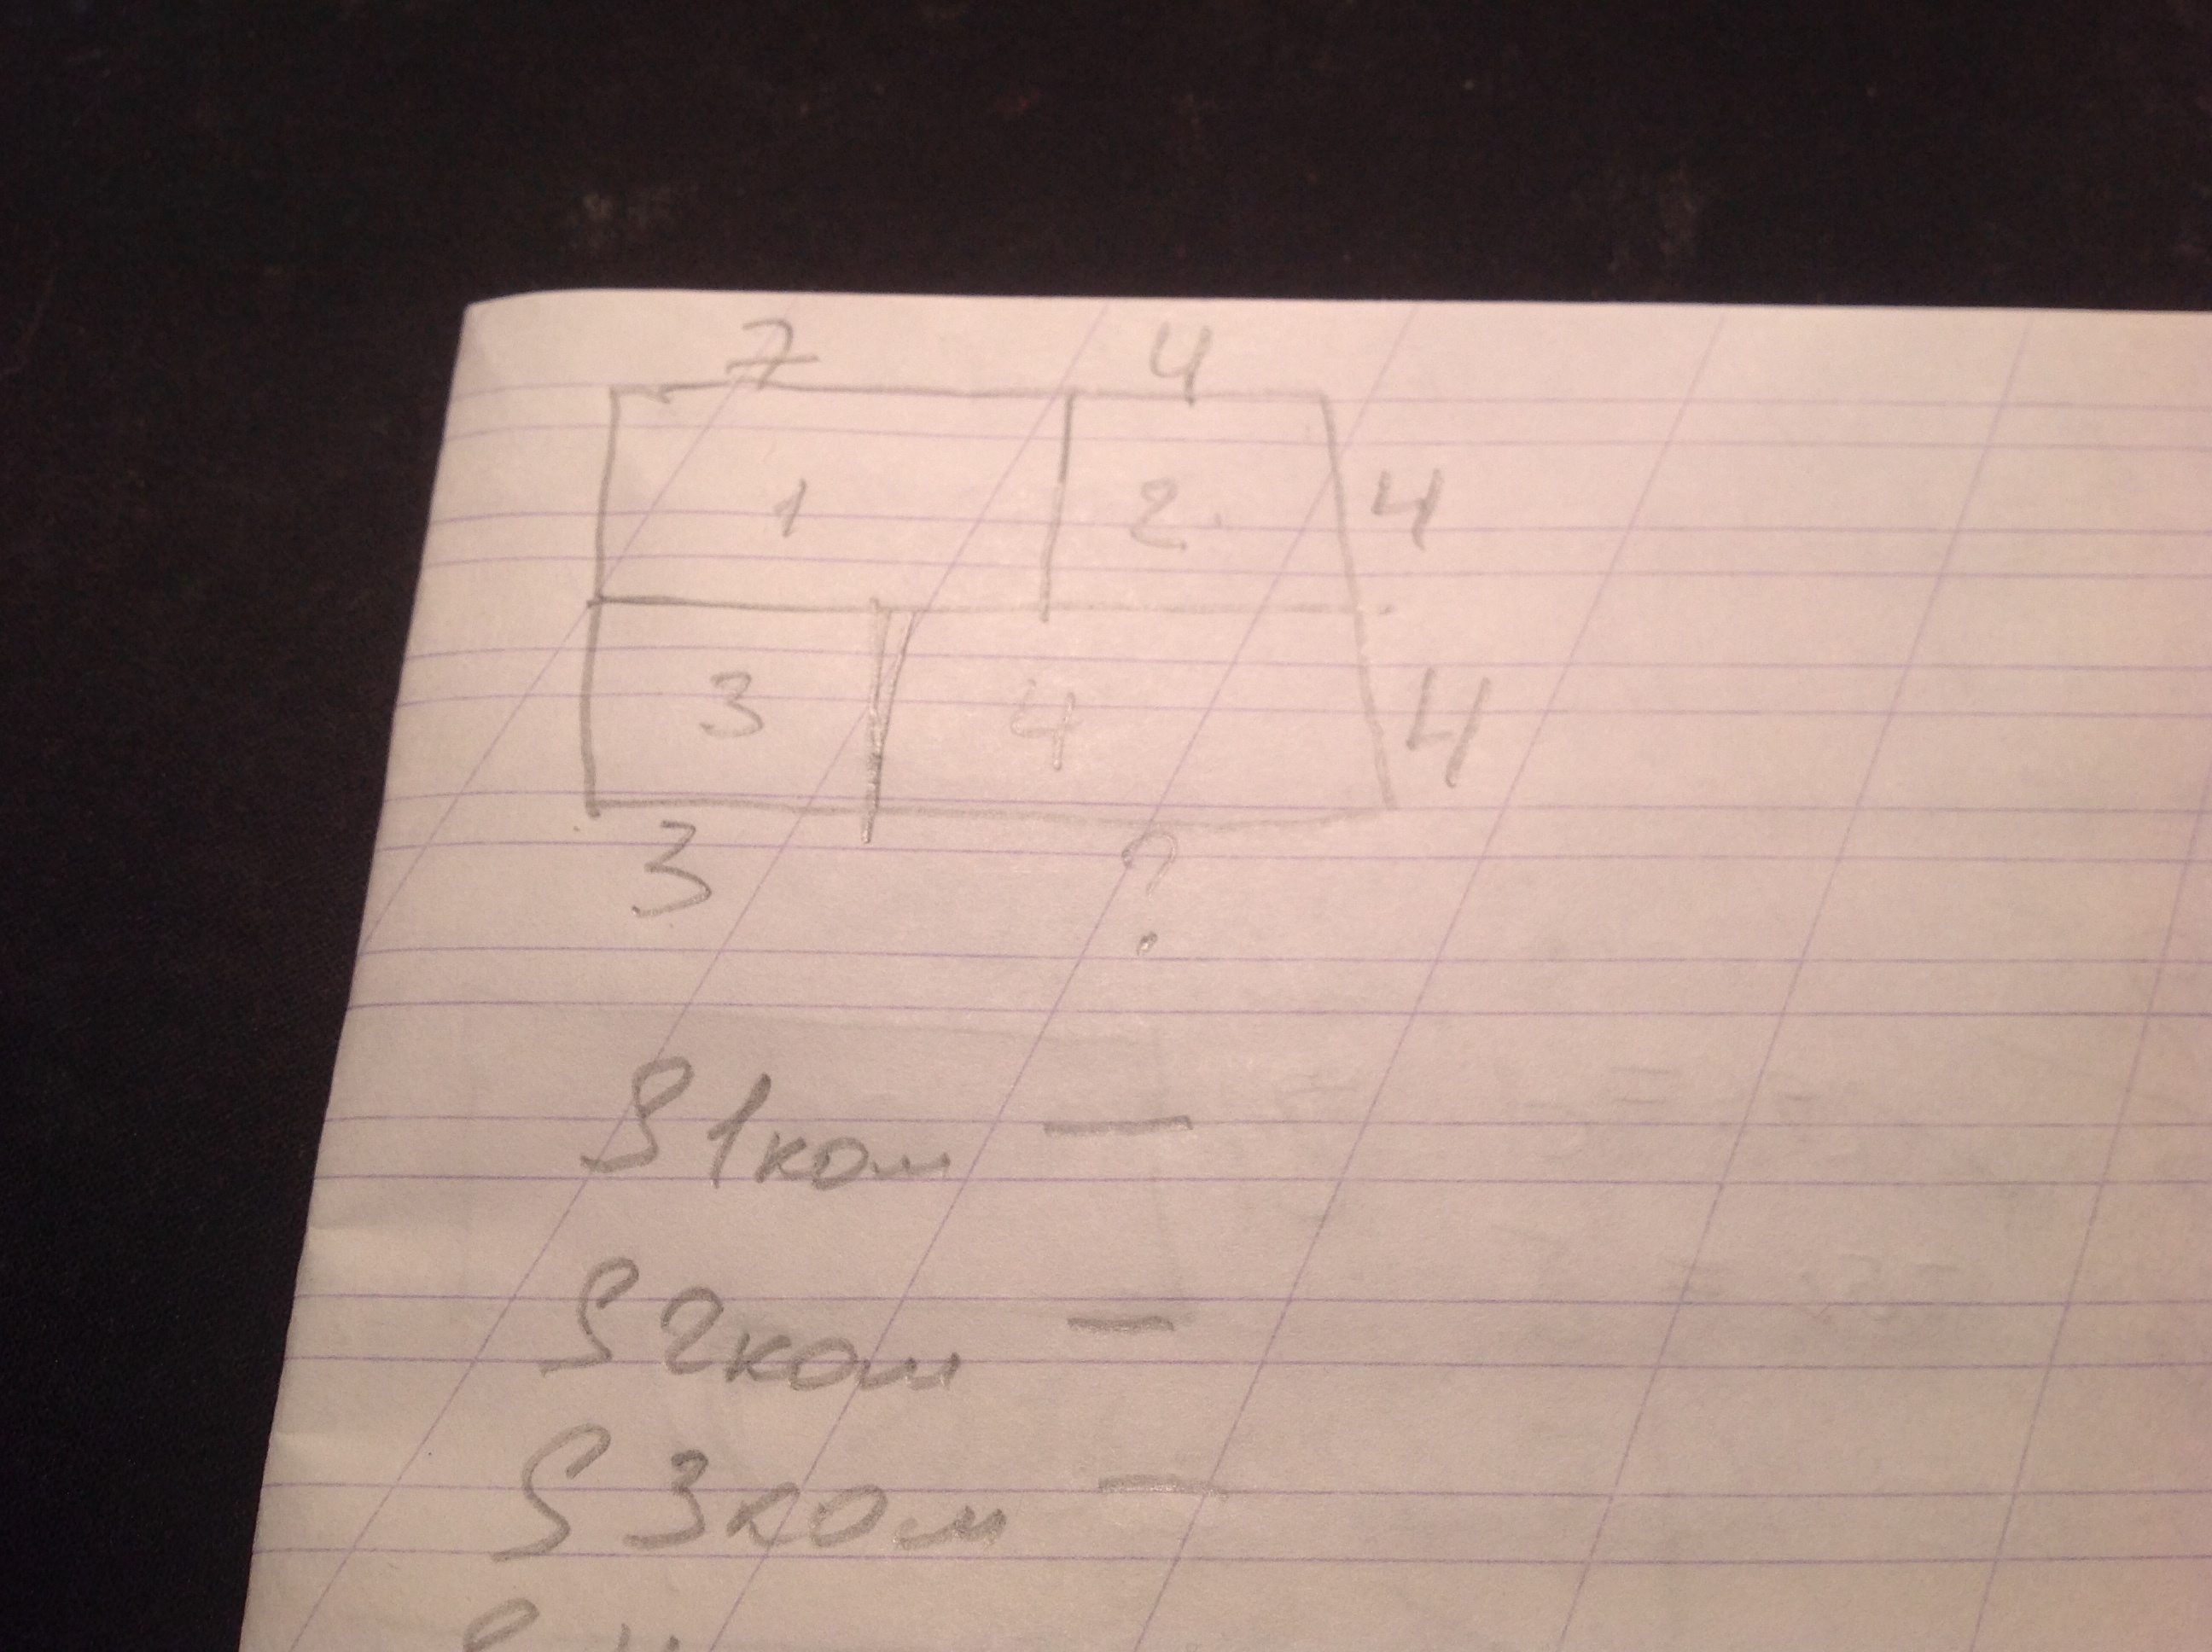 7 4
1 2 4
3 4 4
3 ?
S 1ком —
S 2ком —
S 3ком —